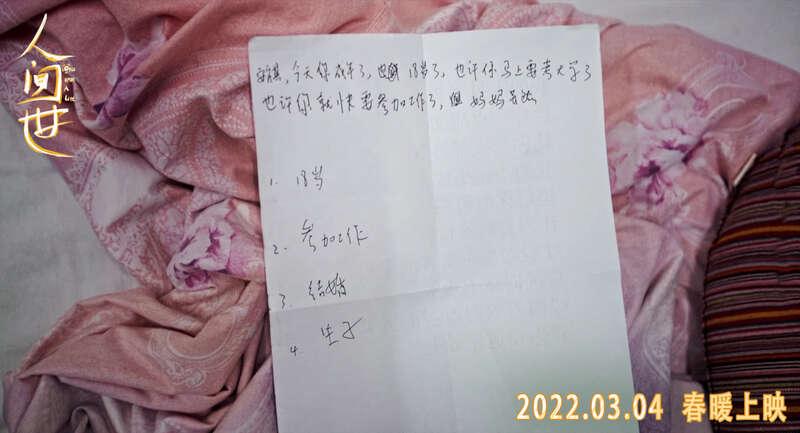 人间世
今天你成年了，也就18岁了，也许你马上要考大学了
也许你就快要参加工作了，但妈妈无法
1. 18岁
2. 参加工作
3. 结婚
4. 生子
2022.03.04 春暖上映